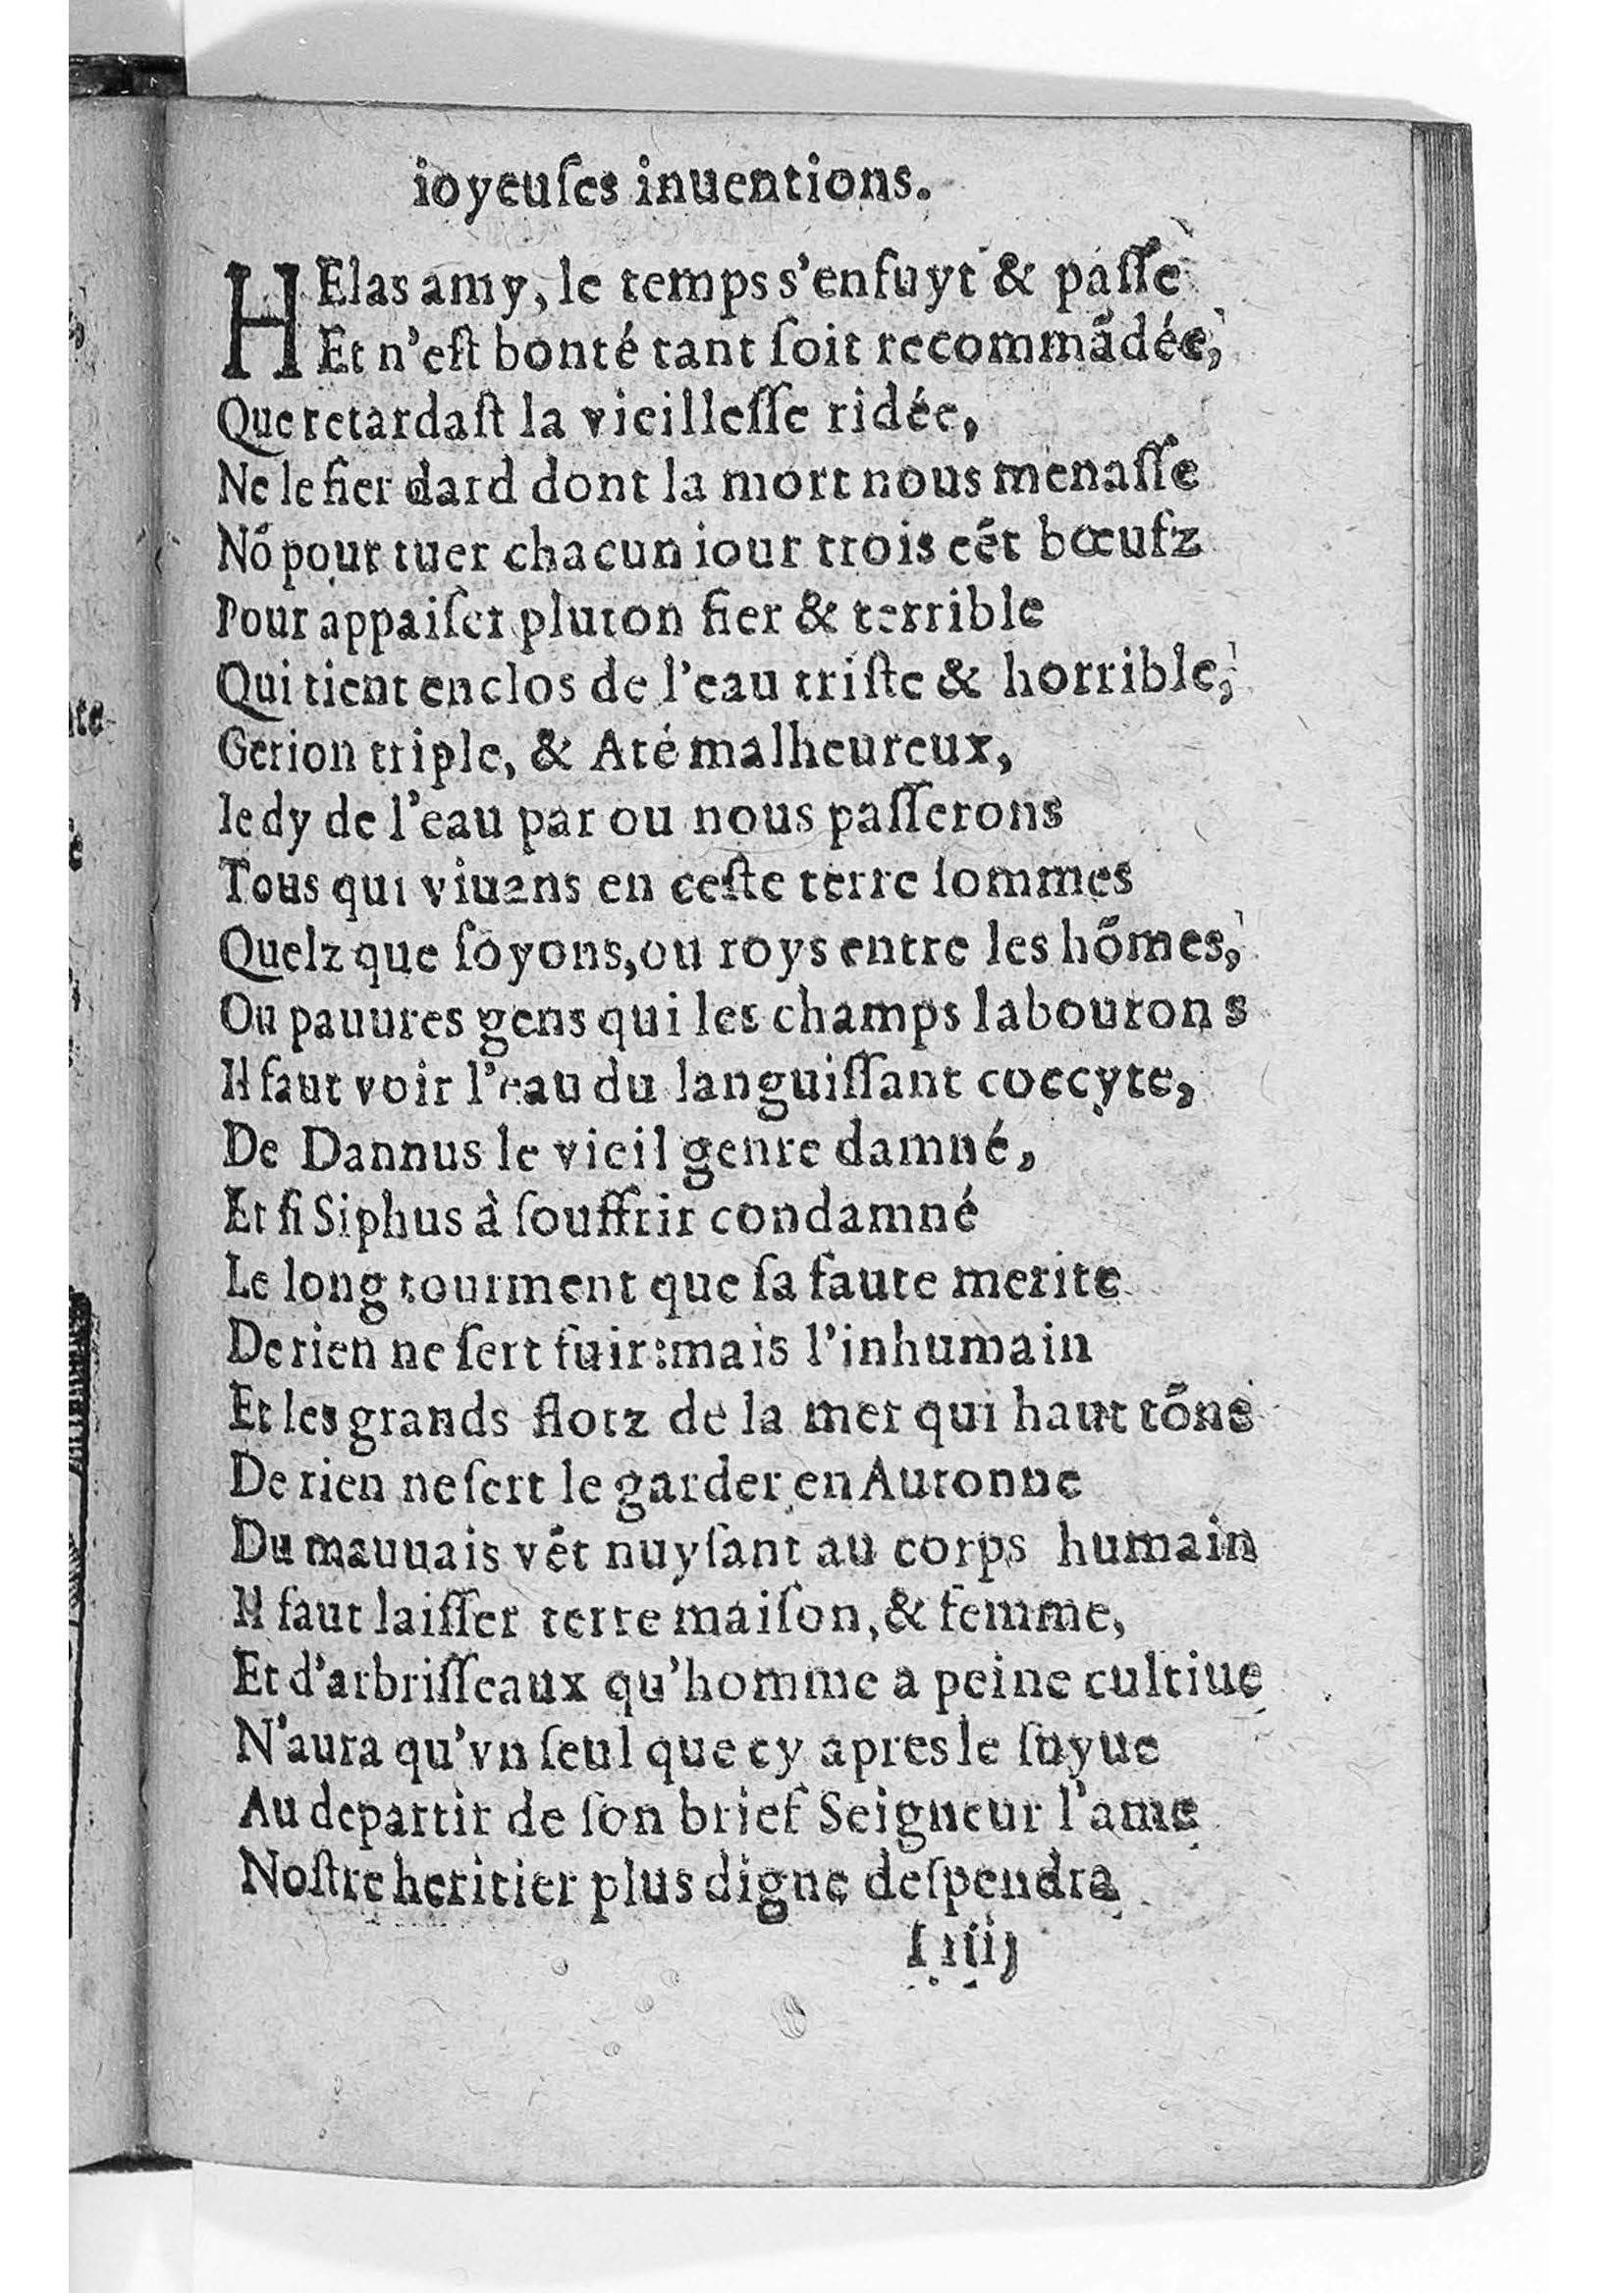 ioyeuſes inuentions.
HElas amy, le temps s'enfuyt & paſſe
Et n'eſt bonté tant ſoit recommãdée,
Que retardaſt la vieilleſſe ridée,
Ne le fier dard dont la mort nous menaſſe
Nõ pour tuer chacun iour trois cẽt bœufz
Pour appaiſer pluton fier & terrible
Qui tient enclos de l'eau triſte & horrible,
Gerion triple, & Até malheureux,
Ie dy de l'eau par ou nous paſſerons
Tous qui viuans en ceſte terre ſommes
Quelz que ſoyons, ou roys entre les hõmes,
Ou pauures gens qui les champs labourons
Il faut voir l'eau du languiſſant coccyte,
De Dannus le vieil genre damné,
Et ſi Siphus à ſouffrir condamné
Le long tourment que ſa faute merite
De rien ne ſert fuir: mais l'inhumain
Et les grands flotz de la mer qui haut tõne
De rien ne ſert le garder en Autonne
Du mauuais vẽt nuyſant au corps humain
Il faut laiſſer terre maiſon, & femme,
Et d'arbriſſeaux qu'homme a peine cultiue
N'aura qu'vn ſeul que cy apres le ſuyue
Au departir de ſon brief Seigneur l'ame
Noſtre heritier plus digne deſpendra
I iiij